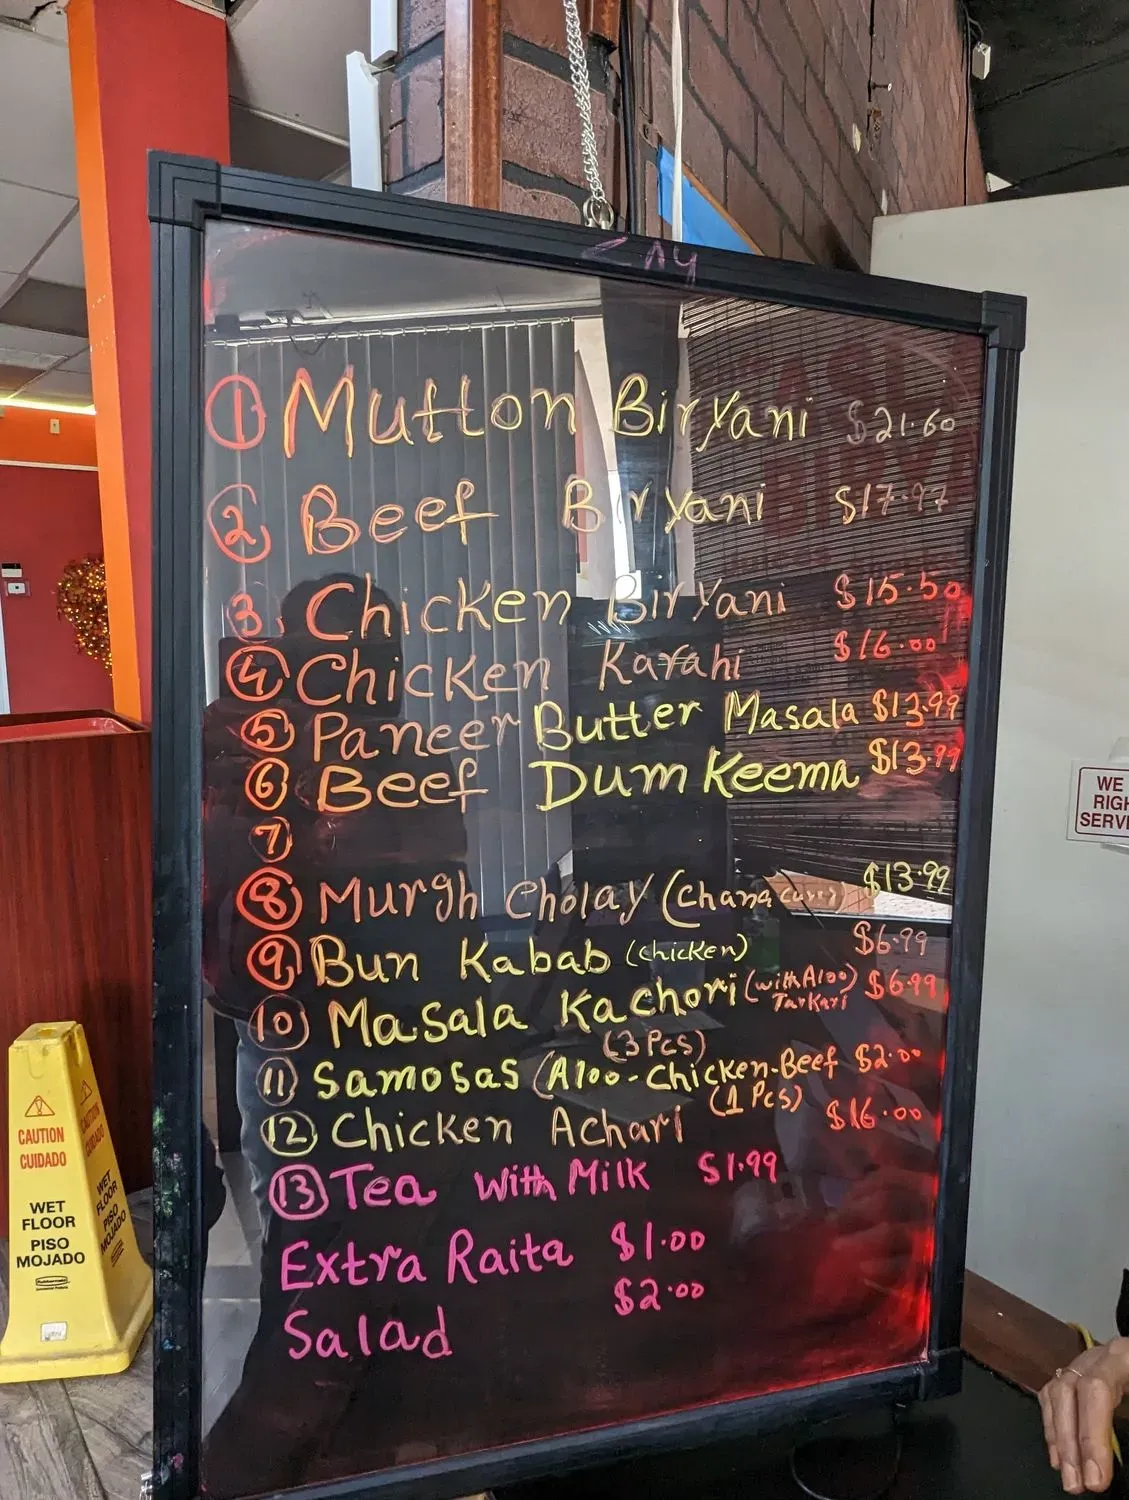 1 Mutton Biryani $21.60
2 Beef Biryani $17.97
3 Chicken Biryani $15.50
4 Chicken Karahi $16.00
5 Paneer Butter Masala $13.99
6 Beef Dum Keema $13.99
7
8 Murgh Cholay (Chana Curry) $13.99
9 Bun Kabab (chicken) $6.99
10 Masala Kachori (with Aloo Tarkari) $6.99
(3 Pcs)
11 Samosas (Aloo-Chicken-Beef $2.00
(1 Pcs)
12 Chicken Achari $16.00
13 Tea with Milk $1.99
Extra Raita $1.00
Salad $2.00
CAUTION
CUIDADO
WET
FLOOR
PISO
MOJADO
CAUTION
CUIDADO
WET
FLOOR
PISO
MOJADO
WE
RIGH
SERV